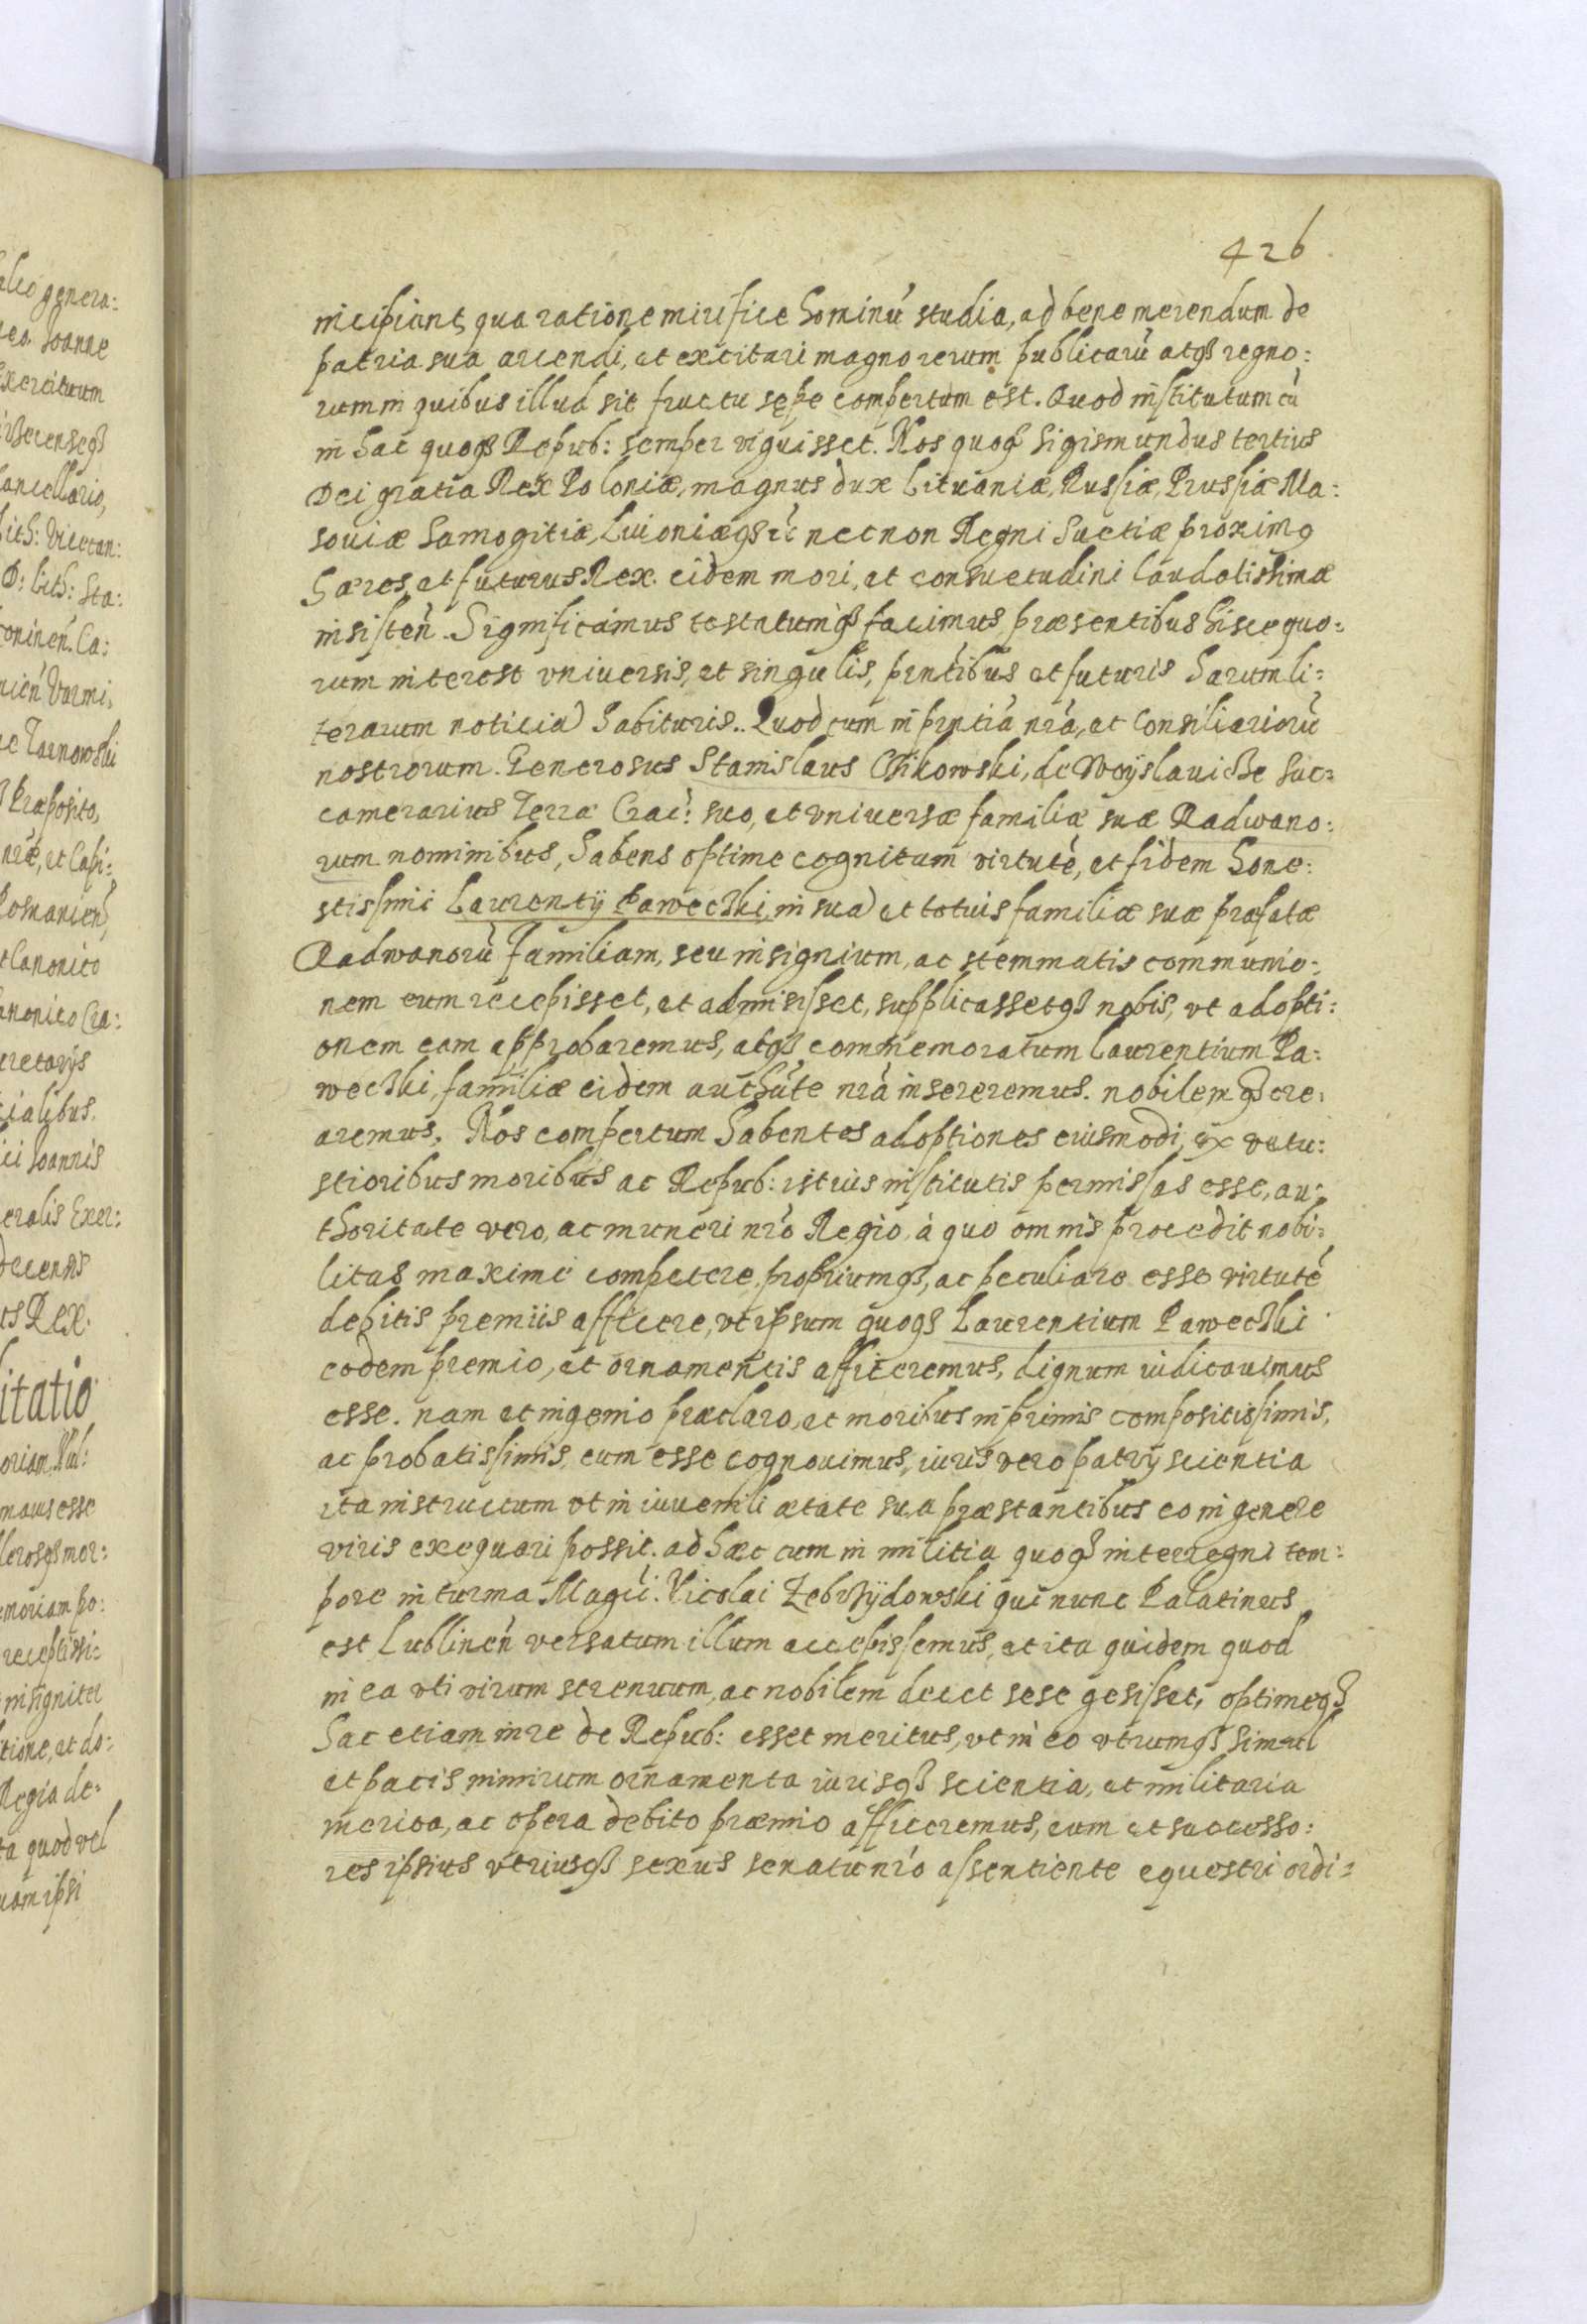 426
incipiant, qua ratione mirifice hominũ studia, ad bene merendum de
patria sua accendi, et excitari magno rerum publicarũ atqȝ regno:
rum in quibus illud sit fructu sępe compertum est. Quod institutum cũ
in hac quoqȝ Repub: semper viguisset. Nos quoqȝ Sigismundus tertius
Dei gratia Rex Poloniæ, magnus dux Lituaniæ, Russiæ, Prussiæ Ma:
souiæ Samogitiæ, Liuoniæqȝ &c necnon Regni Suetiæ proximq
hæres, et futurus Rex. eidem mori, et consuetudini laudatissimæ
insisteñ. Significamus testatumqȝ facimus præsentibus hisce quo:
rum interest vniuersis, et singulis, prñtibus et futuris harum li:
terarum noticia) habituris.. Quod cum in prñtiã nrã, et Consiliariorũ
nostrorum. Generosus Stanislaus Cikowski, de Woÿslauicze Suc:
camerarius Terræ Crac: suo, et vniuersæ familiæ suæ Radwano:
rum nominibus, habens optime cognitam virtutẽ, et fidem hone:
stissimi Laurentÿ Pawecżki, in sua) et totius familiæ suæ præfatæ
Radwanorũ Familiam, seu insignium, ac stemmatis communio:
nem eum recepisset, et admisisset, supplicassetqȝ nobis, vt adopti:
onem eam approbaremus, atqȝ commemoratum Laurentium Pa:
wecżki, familiæ eidem authũte nrã insereremus. nobilemqȝ cre:
aremus. Nos compertum habentes adoptiones eiusmodi, ex vetu:
stioribus moribus ac Repub: istius institutis permissas esse, au:
thoritate vero, ac muneri nrõ Regio, à quo omnis procedit nobi:
litas maxime competere, propriumqȝ, ac peculiare esse virtutẽ
debitis premiis afficere, vt ipsum quoqȝ Laurentium Pawecżki
eodem premio, et ornamentis afficeremus, dignum iudicauimus
esse. nam et ingenio præclaro, et moribus inprimis compositissimis,
ac probatissimis, eum esse cognouimus, iuris vero patrÿ scientia
ita instructum vt in iuuenili ætate sua præstantibus eo in genere
viris exequari possit. ad hæc cum in militia quoqȝ interregni tem:
pore in turma Magci: Nicolai Zebrżÿdowski qui nunc Palatinus
est Lublineñ versatum illum accepissemus, et ita quidem quod
in ea vti virum strenuum, ac nobilem decet sese gesisset, optimeqȝ
hac etiam in re de Repub: esset meritus, vt in eo vtrumqȝ simul
et pacis nimirum ornamenta iurisqȝ scientia, et militaria
merita, ac opera debito præmio afficeremus, eum et successo:
res ipsius vtriusqȝ sexus senatu nrõ assentiente equestri ordi: